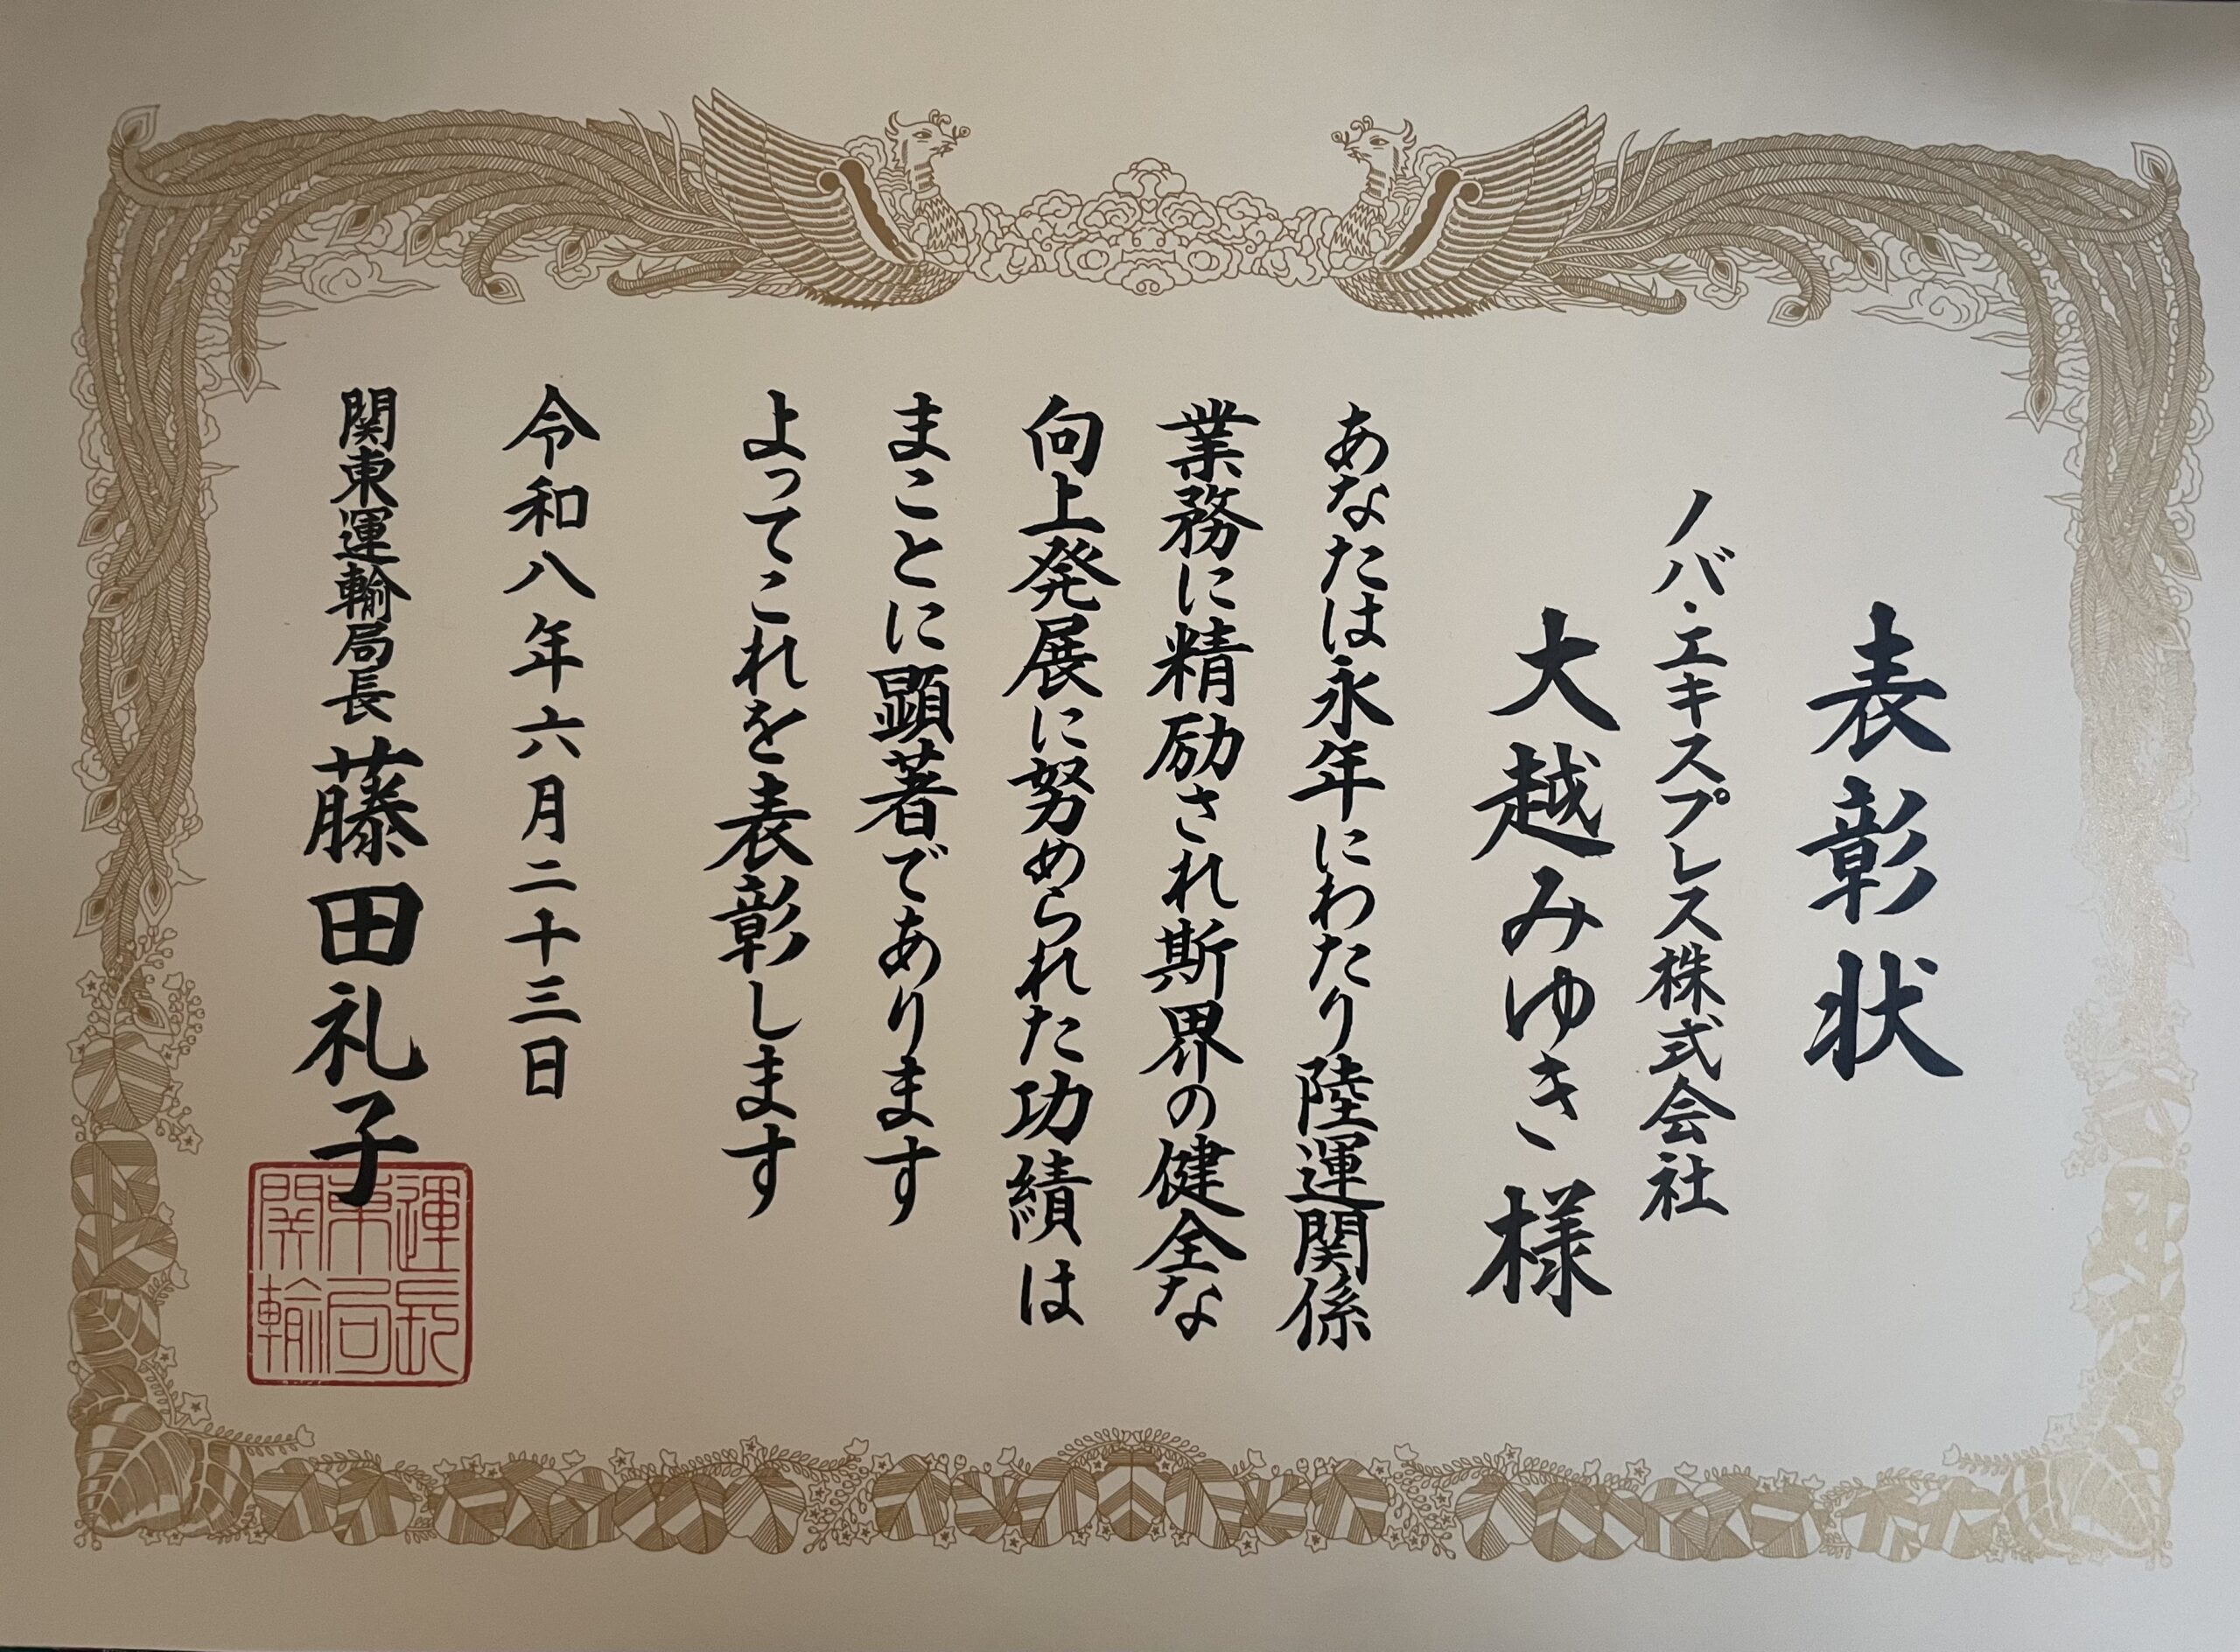 表彰状
ノバ・エキスプレス株式会社
大越みゆき様
あなたは永年にわたり陸運関係
業務に精励され斯界の健全な
向上発展に努められた功績は
まことに顕著であります
よってこれを表彰します
令和八年六月二十三日
関東運輸局長 藤田礼子
関東運
輸局長